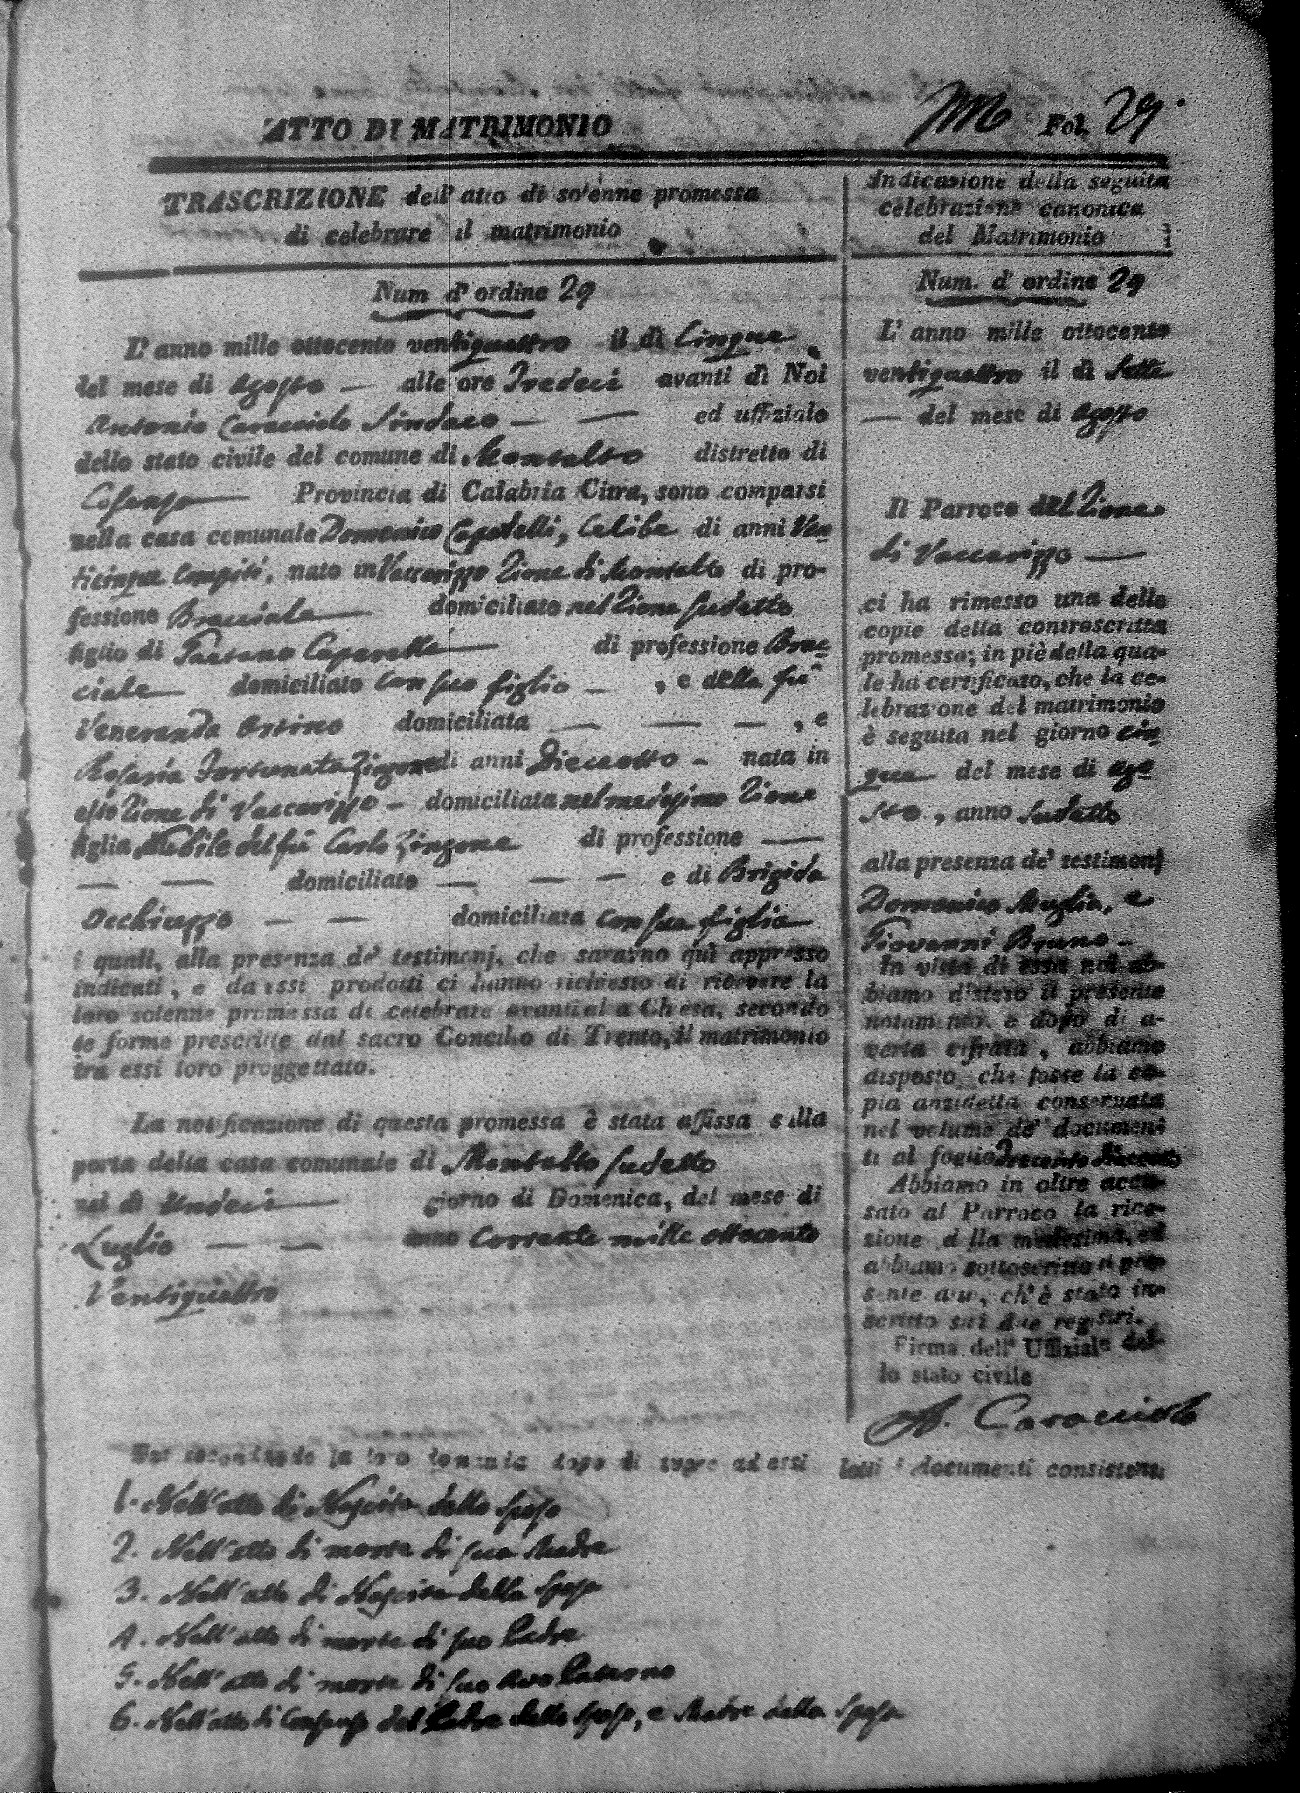 ATTO DI MATRIMONIO
Fol. 29.
TRASCRIZIONE dell' atto di solenne promessa
di celebrare il matrimonio
Num d' ordine 29
L' anno mille ottocento ventiquattro il di Cinque
del mese di Agosto — alle ore Tredeci avanti di Noi
Antonio Caracciolo Sindaco — — ed uffiziale
dello stato civile del comune di Montalto distretto di
Cosenza — Provincia di Calabria Citra, sono comparsi
nella casa comunale Domenico Capatelli, Celibe di anni Ven
ticinque compiti, nato in Vaccarizzo Zione di Montalto di pro-
fessione Bracciale — domiciliato nel Zione sudetto
figlio di Gaetano — di professione Brac
ciale — domiciliato con suo figlio — , e della fù
Veneranda Orrino domiciliata — — — , e
Rosaria Fortunata Zingone di anni Dieceotto — nata in
esso Zione di Vaccarizzo — domiciliata nel medesimo Zione
figlia Nubile del fù Carlo Zingone di professione —
— — domiciliato — — — e di Brigida
Occhiuzzo — — domiciliata con sua figlia
i quali, alla presenza de' testimonj, che saranno quì appresso
indicati, e da essi prodotti ci hanno richiesto di ricevere la
loro solenne promessa di celebrare avanti al a Chiesa, secondo
le forme prescritte dal sacro Concilio di Trento, il matrimonio
tra essi loro proggettato.
La notificazione di questa promessa è stata affissa sulla
porta della casa comunale di Montalto sudetto
nel di Undeci — giorno di Domenica, del mese di
Luglio — — anno Corrente mille ottocento
Ventiquattro
Indicazione della seguita
celebrazione canonica
del Matrimonio
Num. d' ordine 29
L' anno mille ottocento
ventiquattro il di Sette
— del mese di Agosto
Il Parroco del Zione
di Vaccarizzo —
ci ha rimesso una delle
copie della controscritta
promessa; in piè della qua-
le ha certificato, che la ce-
lebrazione del matrimonio
è seguita nel giorno cin
que — del mese di ago
sto , anno Sudetto
alla presenza de' testimonj
Domenico Muglia, e
Giovanni Bruno —
In vista di essa noi ab-
biamo disteso il presente
notamento, e dopo di a-
verla cifrata, abbiamo
disposto che fosse la co-
pia anzidetta conservata
nel volume de' documen
ti al foglio
Abbiamo in oltre accu-
sato al Parroco la rice-
zione della medesima, ed
abbiamo sottoscritto il pre-
sente atto, ch' è stato in-
scritto sui due registri.
Firma dell' Uffiziale del-
lo stato civile
A. Caracciolo
Noi secondando la loro domanda dopo di aver ad essi letti i documenti consistenti
1. Nell'atto di Nascita dello Sposo
2. Nell'atto di morte di sua Madre
3. Nell'atto di Nascita della Sposa
4. Nell'atto di morte di suo Padre
5. Nell'atto di morte di suo Avo Paterno
6. Nell'atto di Consenso del Padre dello Sposo, e Madre della Sposa